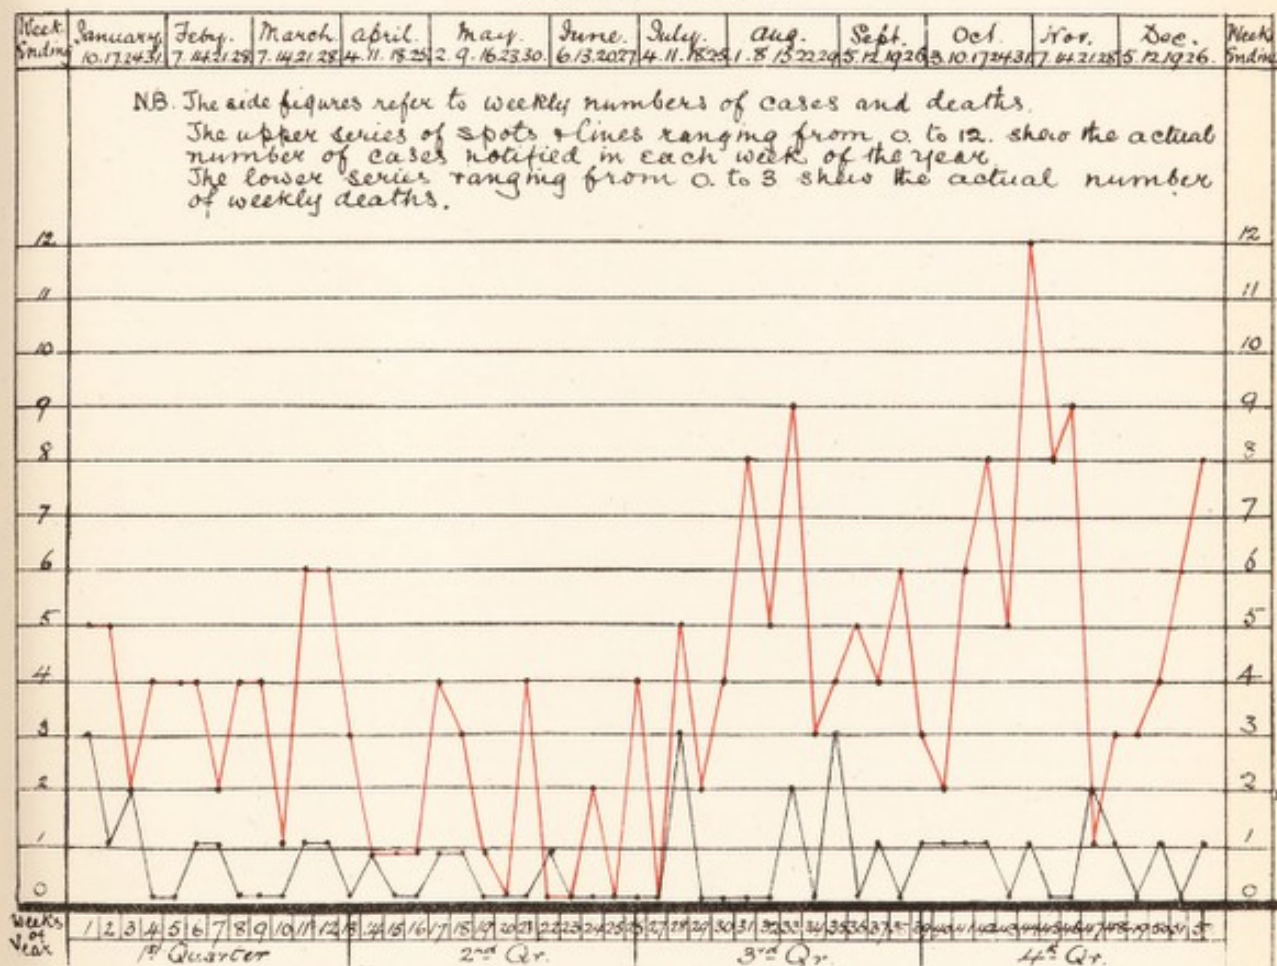 Week January Feby. March April. May. June. July. Aug. Sept. Oct. Nov. Dec. Week
Ending 10.17.24.31 7.14.21.28 7.14.21.28 4.11.18.25 2.9.16.23.30. 6.13.20.27 4.11.18.25 1.8.15.22.29 5.12.19.26 3.10.17.24.31 7.14.21.28 5.12.19.26. Ending
N.B. The side figures refer to weekly numbers of cases and deaths.
The upper series of spots & lines ranging from 0. to 12. shew the actual
number of cases notified in each week of the year
The lower series ranging from 0. to 3 shew the actual number
of weekly deaths.
12 12
11 11
10 10
9 9
8 8
7 7
6 6
5 5
4 4
3 3
2 2
1 1
0 0
Weeks of Year 1 2 3 4 5 6 7 8 9 10 11 12 13 14 15 16 17 18 19 20 21 22 23 24 25 26 27 28 29 30 31 32 33 34 35 36 37 39 40 41 42 43 44 45 46 47 48 49 50 51
1st Quarter 2nd Qr. 3rd Qr. 4th Qr.